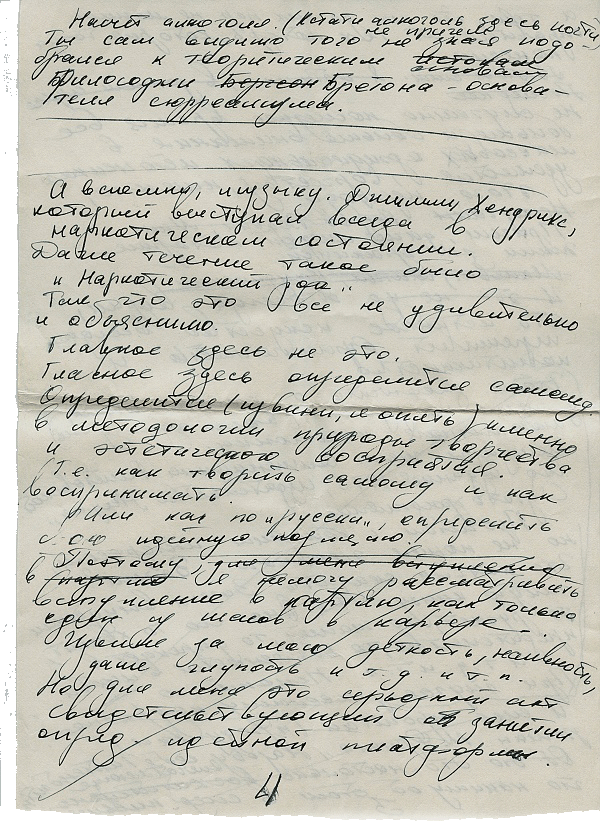 Насчёт алкоголя. (Кстати алкоголь здесь почти
не причём)
Ты сам видимо того не зная подо-
брался к теоритическим истокам
основам
философии Бергсон Бретона - основа-
теля сюрреализма.
А вспомни, музыку. Джимми Хендрикс,
который выступал всегда в
наркотическом состоянии.
Даже течение такое было
"Наркотический рок"
Так что это всё не удивительно
и объяснимо.
Главное здесь не это.
Главное здесь определится самому.
Определится (извини, я опять) именно
в методологии природы творчества
и эстетического восприятия.
Т.е. как творить самому и как
воспринимать.
Или как по "русски", определить
идейную позицию.
Поэтому, для меня вступление
в партию я немогу рассматривать
вступление в партию, как только
один из шагов в карьере.
Извини за мою детскость, наивность,
даже глупость и т.д. и т.п.
Но для меня это серьёзный акт
свидетельствующий о занятии
опред. идейной платформы.
4